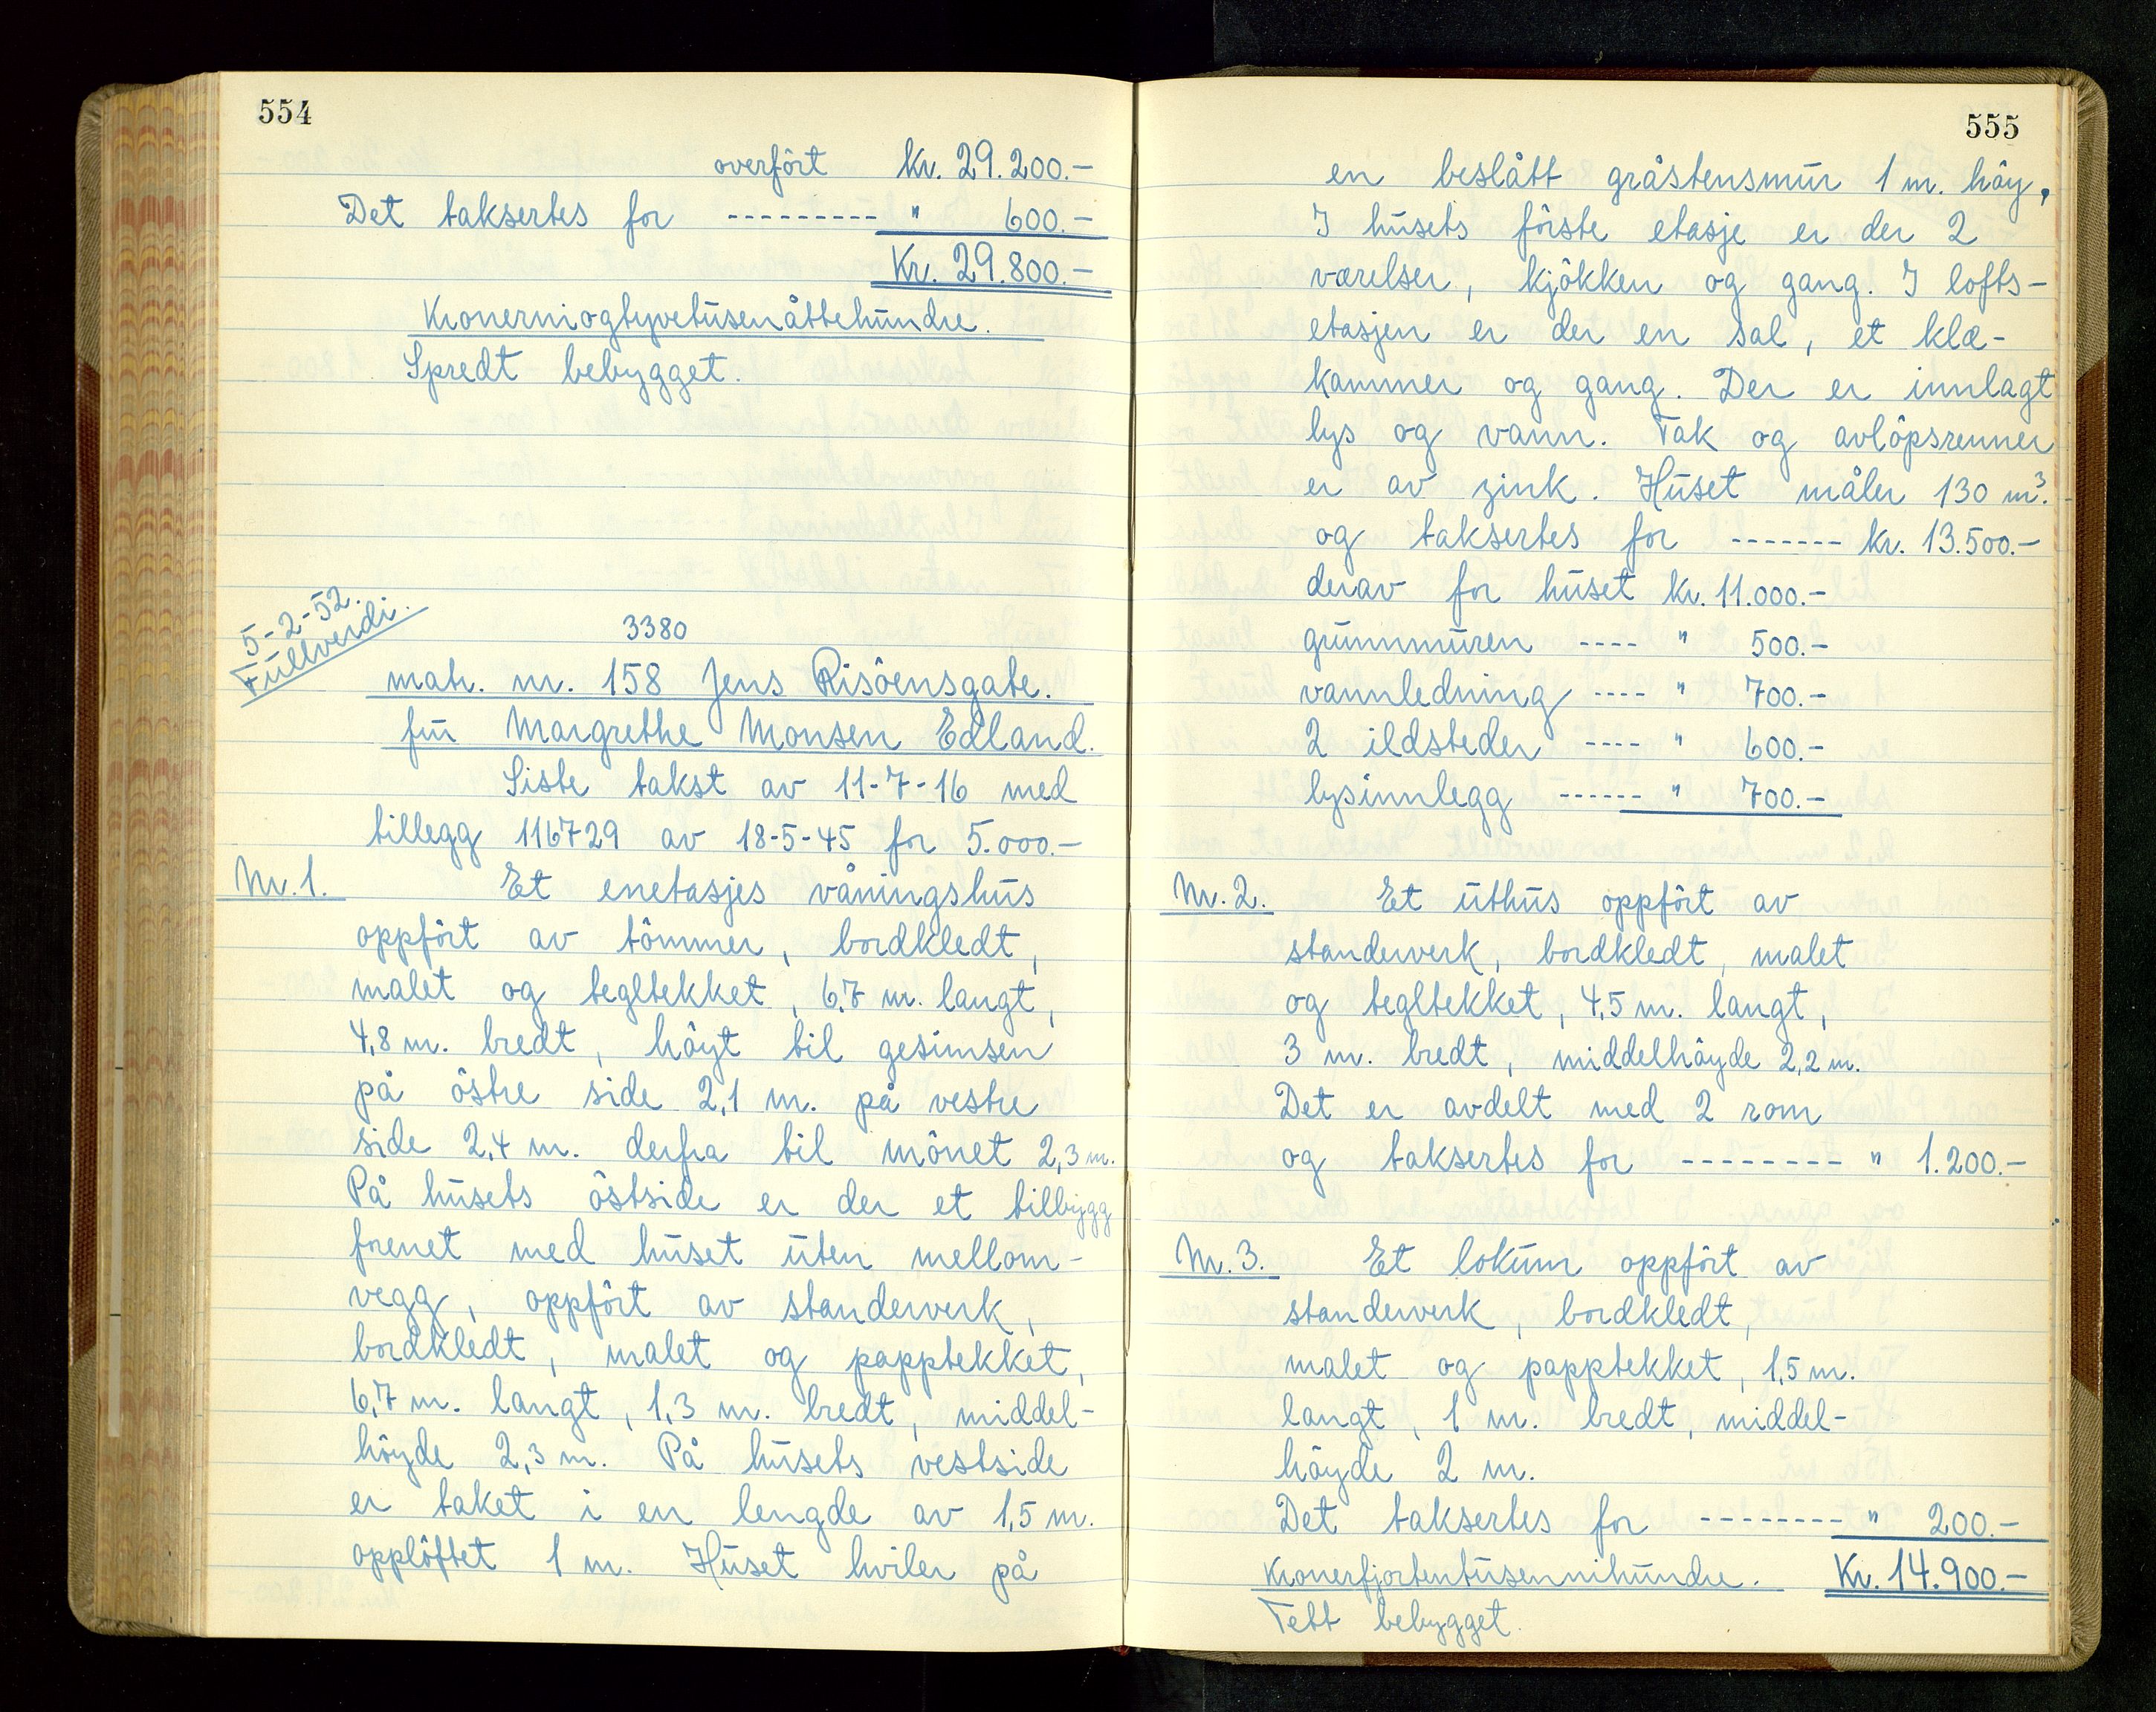 554
overført kr. 29.200.-
Det taksertes for --------- " 600.-
Kr. 29.800.-
Kronerniogtyvetusenåttehundre.
Spredt bebygget.
5-2-52.
Fullverdi.
3380
matr. nr. 158 Jens Risøensgate.
fru Margrethe Monsen Edland.
Siste takst av 11-7-16 med
tillegg 116729 av 18-5-45 for 5.000.-
Nr. 1. Et enetasjes våningshus
oppført av tømmer, bordkledt,
malet og tegltekket, 6,7 m. langt,
4,8 m. bredt, høyt til gesimsen
på østre side 2,1 m. på vestre
side 2,4 m. derfra til mønet 2,3 m.
På husets østside er der et tilbygg
forenet med huset uten mellom-
vegg, oppført av standerverk,
bordkledt, malet og papptekket,
6,7 m. langt, 1,3 m. bredt, middel-
høyde 2,3 m. På husets vestside
er taket i en lengde av 1,5 m.
oppløftet 1 m. Huset hviler på
555
en beslått gråstensmur 1 m. høy.
I husets første etasje er der 2
værelser, kjøkken og gang. I lofts-
etasjen er der en sal, et kle-
kammer og gang. Der er innlagt
lys og vann. Tak og avløpsrenner
er av zink. Huset måler 130 m³.
og taksertes for ------- kr. 13.500.-
derav for huset kr. 11.000.-
grunnmuren ---- " 500.-
vannledning ---- " 700.-
2 ildsteder ---- " 600.-
lysinnlegg ------ " 700.-
Nr. 2. Et uthus oppført av
standerverk, bordkledt, malet
og tegltekket, 4,5 m. langt,
3 m. bredt, middelhøyde 2,2 m.
Det er avdelt med 2 rom
og taksertes for -------- " 1.200.-
Nr. 3. Et lokum oppført av
standerverk, bordkledt,
malet og papptekket, 1,5 m.
langt, 1 m. bredt, middel-
høyde 2 m.
Det taksertes for -------- " 200.-
Kronerfjortentusennihundre. Kr. 14.900.-
Tett bebygget.